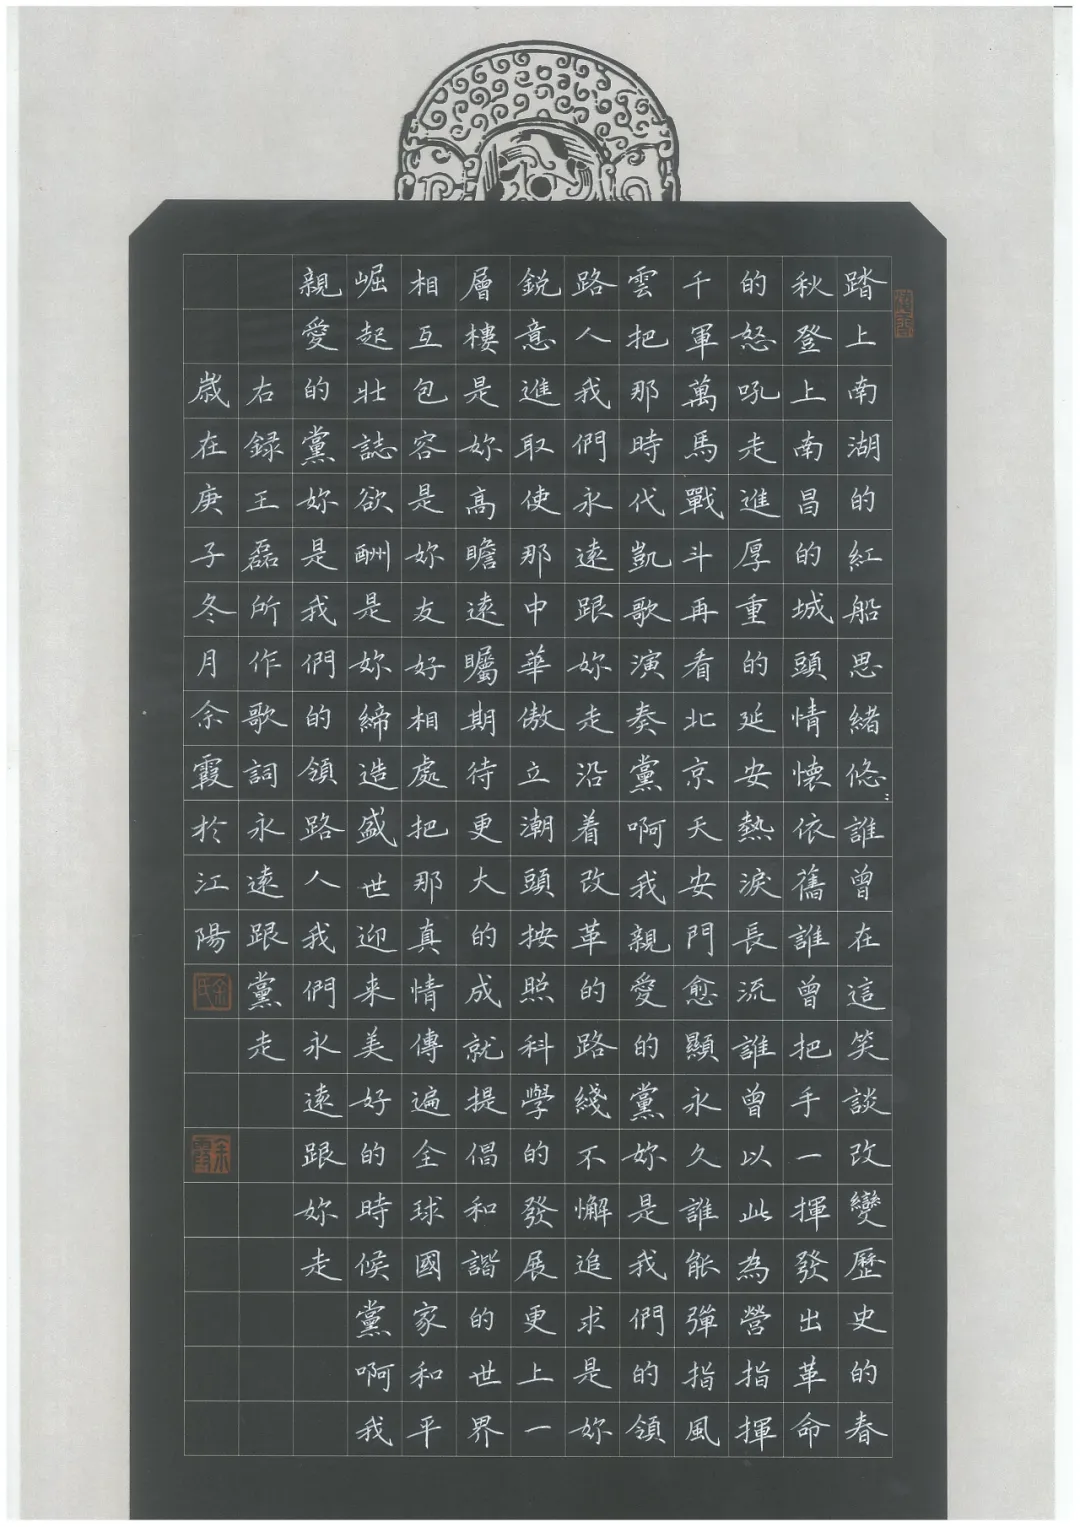 踏上南湖的紅船思緒悠〻誰曾在這笑談改變歷史的春
秋登上南昌的城頭情懷依舊誰曾把手一揮發出革命
的怒吼走進厚重的延安熱淚長流誰曾以此為營指揮
千軍萬馬戰斗再看北京天安門愈顯永久誰能彈指風
雲把那時代凱歌演奏黨啊我親愛的黨妳是我們的領
路人我們永遠跟妳走沿着改革的路綫不懈追求是妳
銳意進取使那中華傲立潮頭按照科學的發展更上一
層樓是妳高瞻遠矚期待更大的成就提倡和諧的世界
相互包容是妳友好相處把那真情傳遍全球國家和平
崛起壯誌欲酬是妳締造盛世迎来美好的時候黨啊我
親愛的黨妳是我們的領路人我們永遠跟妳走
右録王磊所作歌詞永遠跟黨走
歲在庚子冬月余霞於江陽
余氏
余霞